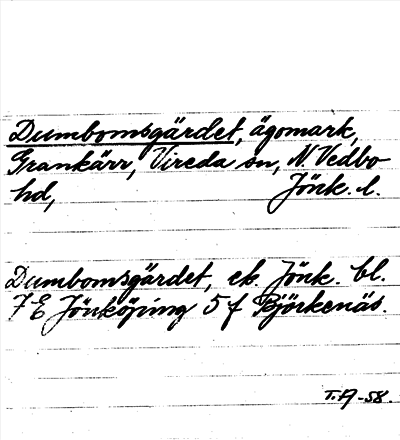 Dumbomsgärdet, ägomark,
Grankärr, Vireda sn, N. Vedbo
hd, Jönk. l.
Dumbomsgärdet, ek. Jönk. bl.
7 E Jönköping 5 f Björkenäs.
T.A-58.